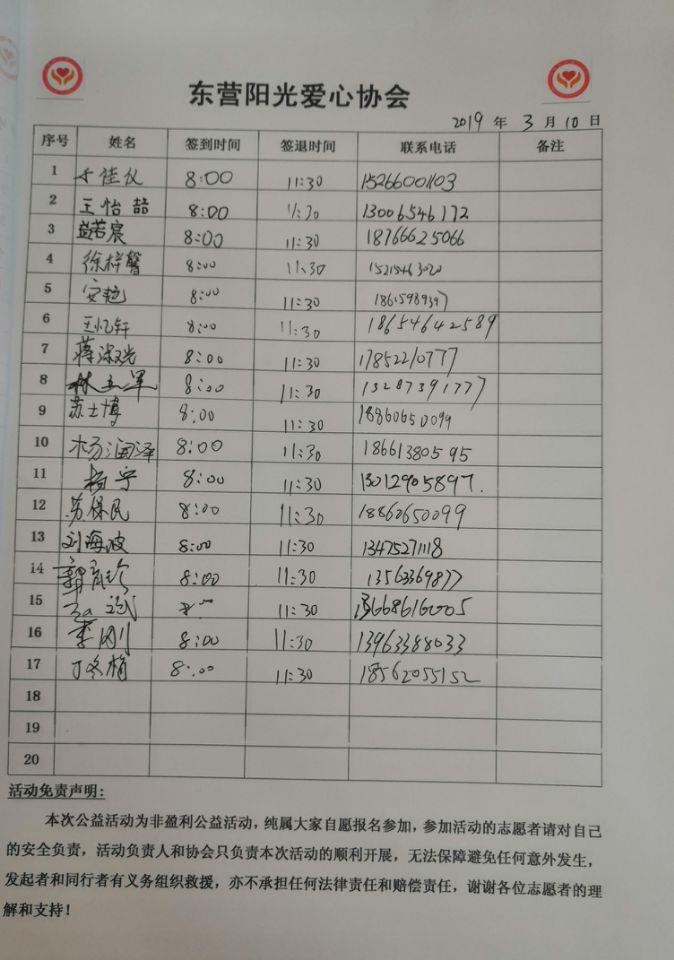 东营阳光爱心协会
2019 年 3 月 10 日
序号 姓名 签到时间 签退时间 联系电话 备注
1 于佳仪 8:00 11:30 15266001103
2 王怡喆 8:00 11:30 13006546172
3 益若宸 8:00 11:30 18766625066
4 徐梓馨 8:00 11:30
5 安 8:00 11:30 18615989397
6 王忆轩 8:00 11:30 18654642589
7 蒋淑光 8:00 11:30 17852210777
8 林玉军 8:00 11:30 13287391777
9 苏士博 8:00 11:30 18860650099
10 杨润泽 8:00 11:30 18661380595
11 杨宁 8:00 11:30 13012905897.
12 苏保民 8:00 11:30 18860650099
13 刘海波 8:00 11:30 13475271118
14 8:00 11:30 13563369877
15 11:30 13668616005
16 李刚 8:00 11:30 13963388033
17 丁冬梅 8:00 11:30 18562055152
18
19
20
活动免责声明:
本次公益活动为非盈利公益活动，纯属大家自愿报名参加，参加活动的志愿者请对自己
的安全负责，活动负责人和协会只负责本次活动的顺利开展，无法保障避免任何意外发生，
发起者和同行者有义务组织救援，亦不承担任何法律责任和赔偿责任，谢谢各位志愿者的理
解和支持！